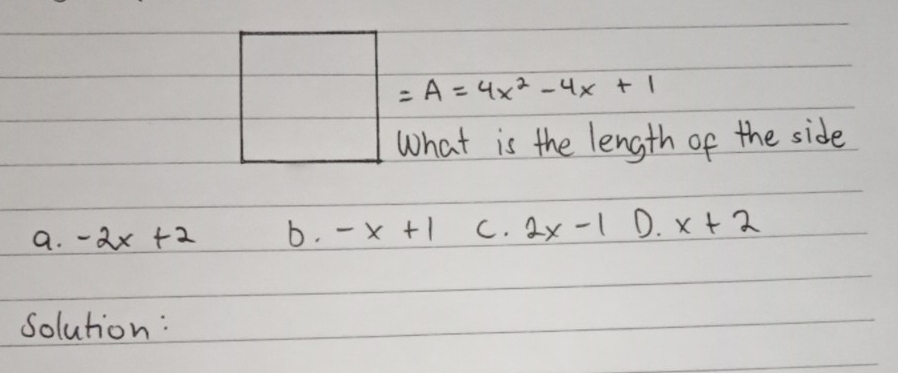 = A = 4x² - 4x + 1
What is the length of the side
a. -2x +2 b. -x +1 c. 2x -1 D. x + 2
Solution: